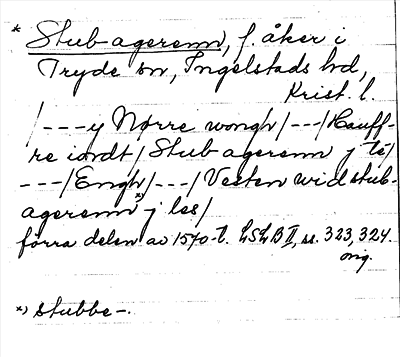 * Stubagerenn, f. åker i
Tryde sn, Ingelstads hd,
Krist. l.
/---y Nørre wongh/---/Hauff-
re iordt/Stubagerenn j te/
---/Engh/---/Vesten wid stub-
agerenn *) j les/
förra delen av 1570-t. LSLB II, ss. 323, 324
orig.
*) stubbe-.